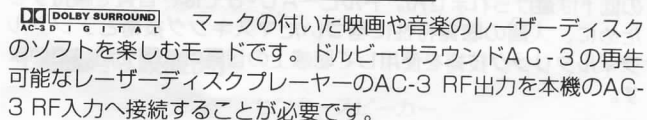 DOLBY SURROUND マークの付いた映画や音楽のレーザーディスク
AC-3 DIGITAL
のソフトを楽しむモードです。ドルビーサラウンドAC-3の再生
可能なレーザーディスクプレーヤーのAC-3 RF出力を本機のAC-
3 RF入力へ接続することが必要です。